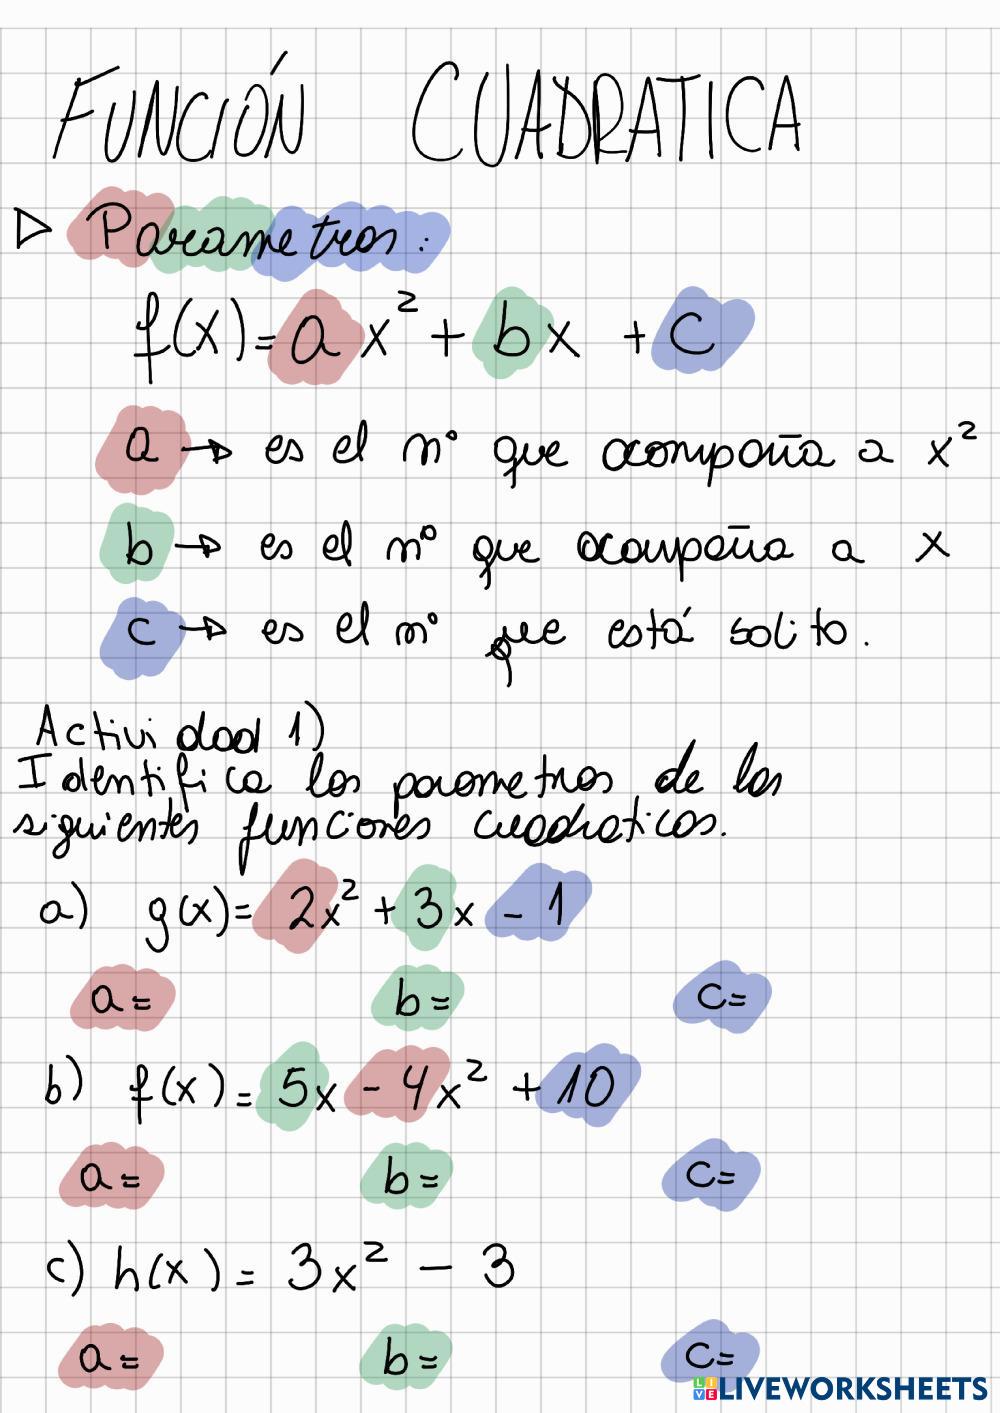 FUNCIÓN CUADRATICA
Parametros:
f(x) = a x² + b x + c
a → es el n° que acompaña a x²
b → es el n° que acompaña a x
c → es el n° que está solito.
Actividad 1)
Identifica los parametros de las
siguientes funciones cuadraticas.
a) g(x) = 2x² + 3x - 1
a= b= c=
b) f(x) = 5x - 4x² + 10
a= b= c=
c) h(x) = 3x² - 3
a= b= c=
LIVEWORKSHEETS